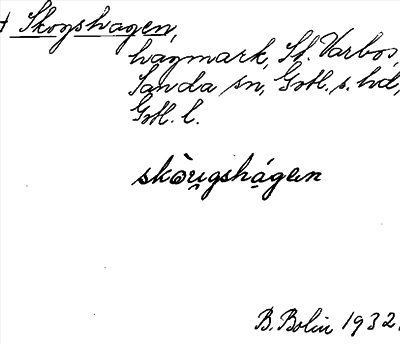 † Skogshagen,
hagmark, St. Varbos,
Sanda sn, Gotl. s. hd,
Gotl. l.
skòu̯gshágen
B. Bolin 1932.